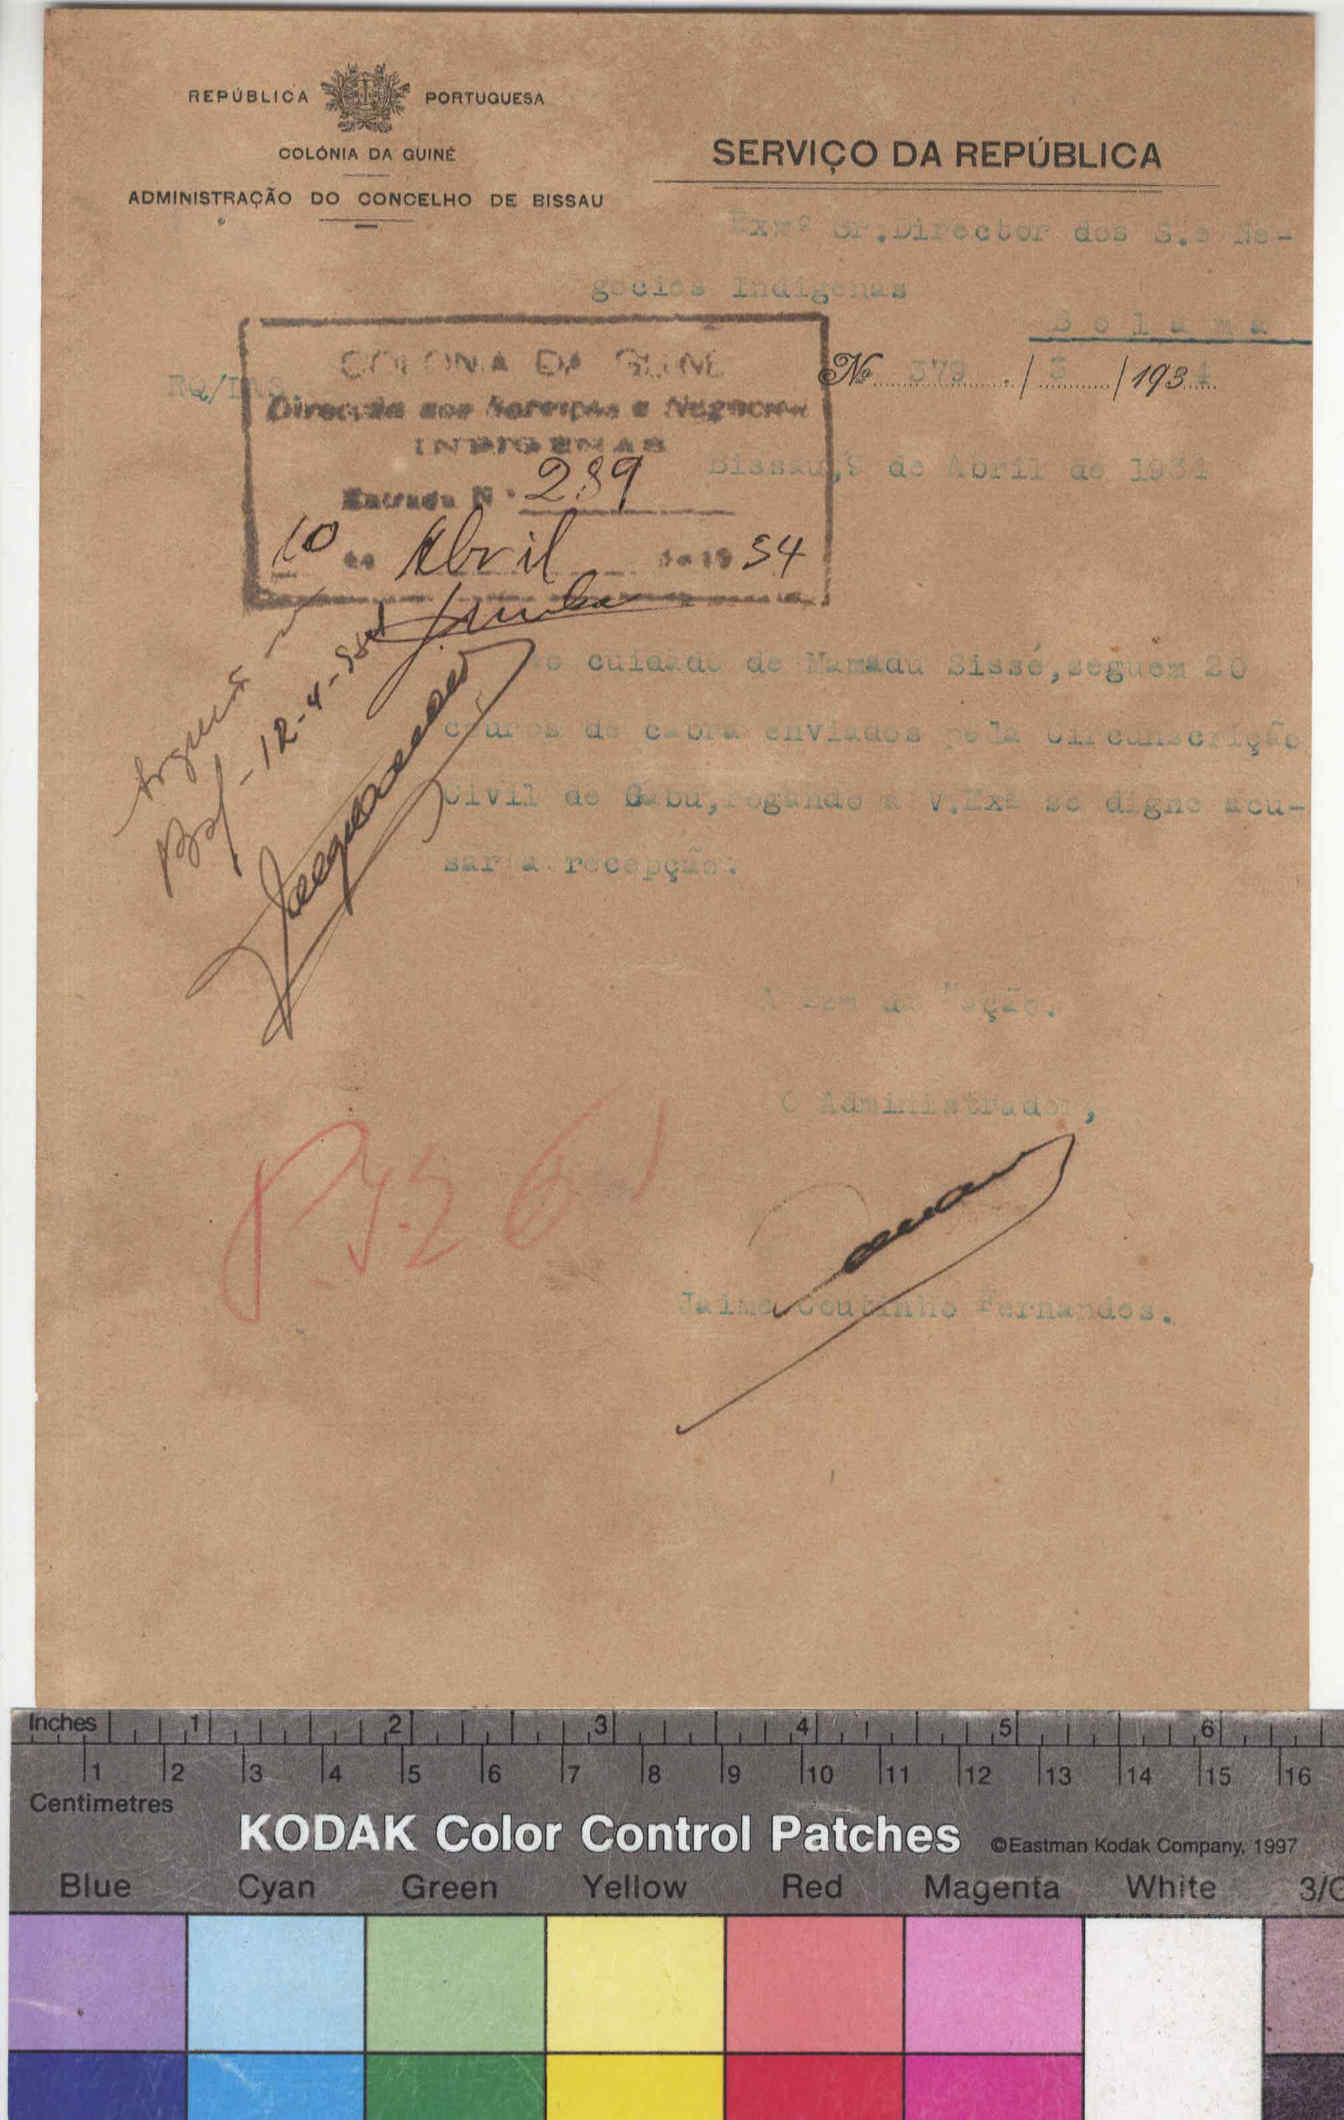 REPÚBLICA PORTUGUESA
COLÓNIA DA GUINÉ
ADMINISTRAÇÃO DO CONCELHO DE BISSAU
SERVIÇO DA REPÚBLICA
Exmº Sr.Director dos S.e Ne-
gocios Indigenas
Bolama
Nº 379 / 3 / 1934
RQ/
COLONIA DA GUINÉ
Direcção dos Serviços e Negocios
INDIGENAS
Entrada Nº 289
10 de Abril de 1934
Bissau,9 de Abril de 1934
Arquive-se
Bol-12-4-934
Ao cuidado de Mamadu Sissé,seguem 20
couros de cabra enviados pela Circunscrição
Civil de Gabu,rogando a V.Exª se digne acu-
sar a recepção.
A Bem da Nação.
O Administrador,
Jaime Coutinho Fernandes.
Inches 1 2 3 4 5 6
1 2 3 4 5 6 7 8 9 10 11 12 13 14 15 16
Centimetres
KODAK Color Control Patches ©Eastman Kodak Company, 1997
Blue Cyan Green Yellow Red Magenta White 3/C